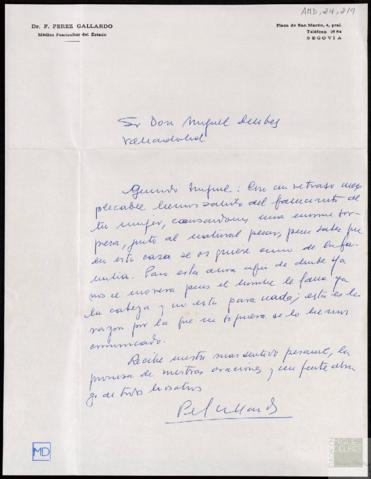 AMD, 24, 219
Dr. F. PEREZ GALLARDO
Médico Puericultor del Estado
Plaza de San Martín, 4, pral.
Teléfono 19 84
SEGOVIA
Sr Don Miguel Delibes
Valladolid
Querido Miguel: Con un retraso inex
plicable hemos sabido del fallecimiento de
tu mujer, causandonos una enorme sor
presa, junto al natural pesar, pues sabes que
en esta casa se os quiere como de la fa
milia.
ya
no se
pues el hombre le falla ya
la cabeza y no esta para nada; esta es la
razon por la que ni siquiera se lo hemos
comunicado.
Recibe nuestro mas sentido pesame, la
promesa de nuestras oraciones y un fuerte abra
zo de todos nosotros
MD